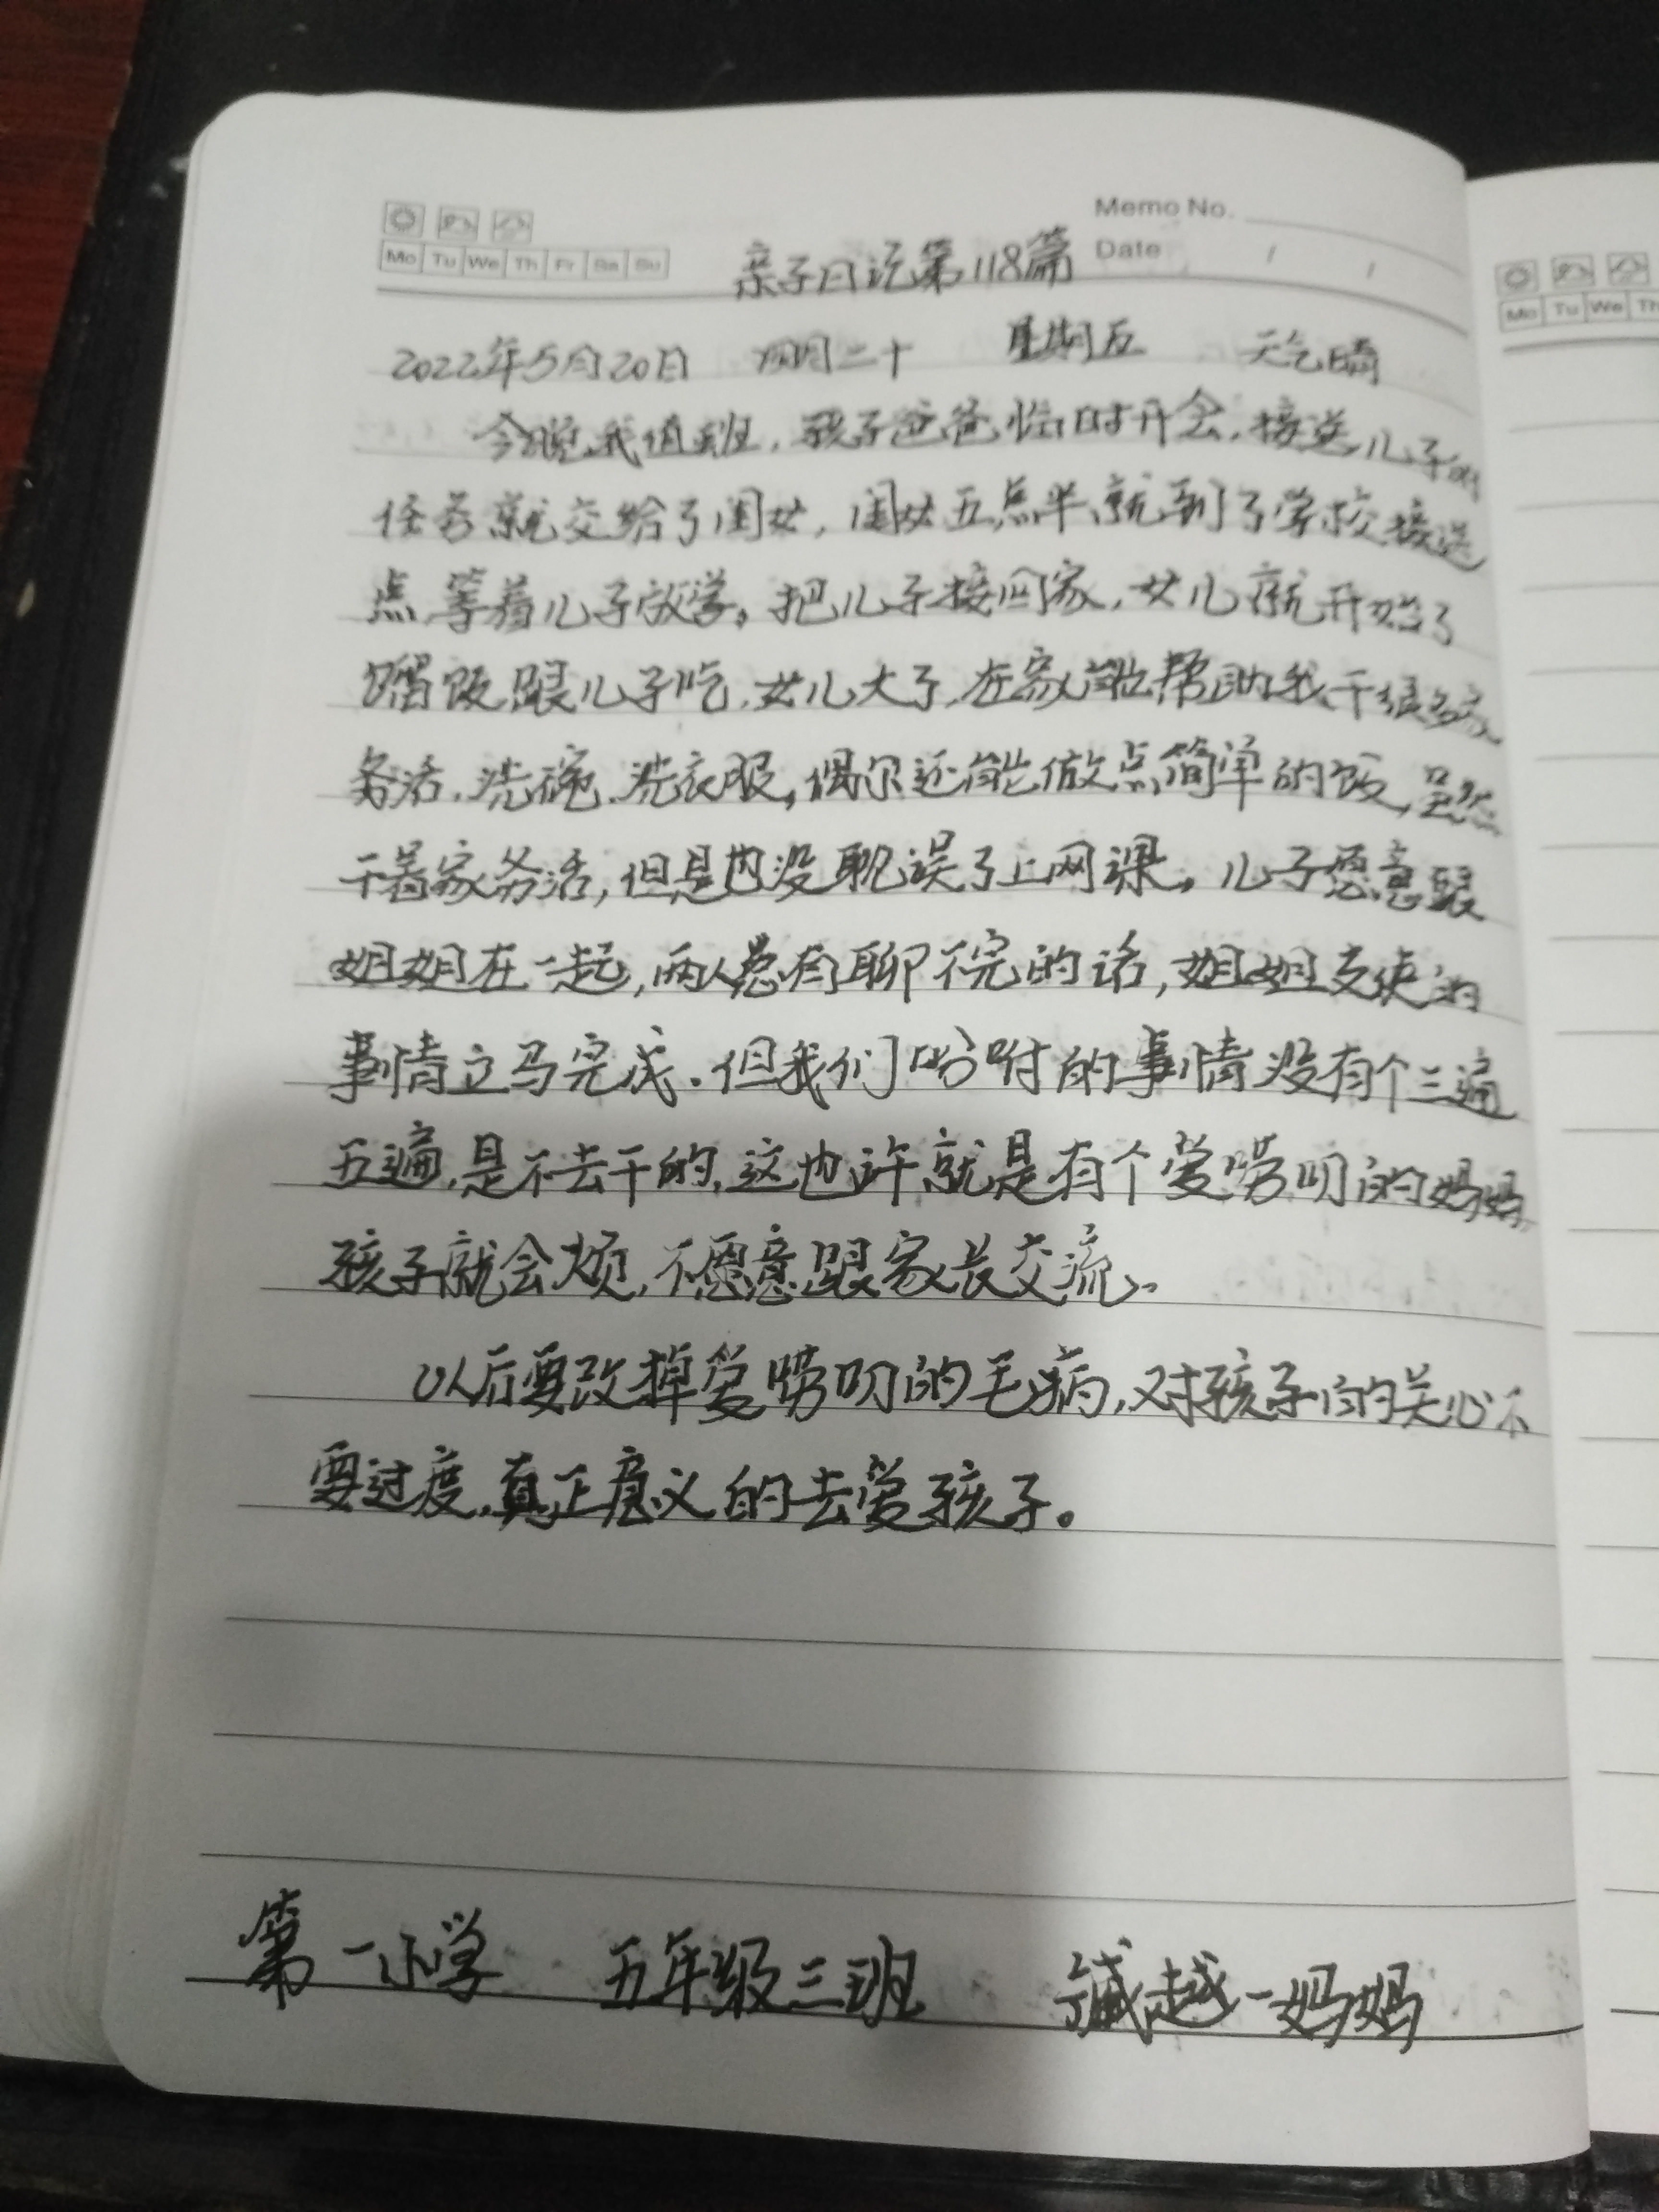 Memo No.
Mo Tu We Th Fr Sa Su
亲子日记第118篇
Date / /
2022年5月20日 四月二十 星期五 天气晴
今晚我值班，孩子爸爸临时开会，接送儿子的
任务就交给了闺女，闺女五点半就到了学校接送
点等着儿子放学。把儿子接回家，女儿就开始了
馏饭跟儿子吃，女儿大了，在家能帮助我干很多家
务活，洗碗、洗衣服，偶尔还能做点简单的饭，虽然
干着家务活，但是也没耽误了上网课。儿子愿意跟
姐姐在一起，两人总有聊不完的话，姐姐支使的
事情立马完成。但我们吩咐的事情没有个三遍
五遍，是不去干的，这也许就是有个爱唠叨的妈妈，
孩子就会烦，不愿意跟家长交流。
以后要改掉爱唠叨的毛病，对孩子的关心不
要过度，真正意义的去爱孩子。
第一小学 五年级三班 越一妈妈
Mo Tu We Th